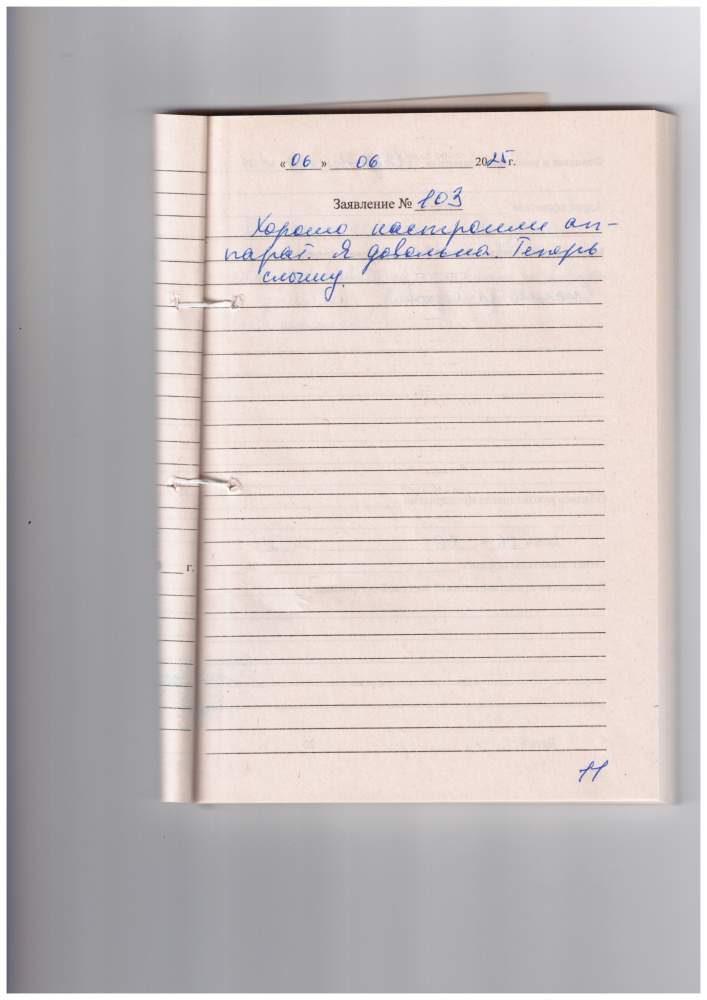 «06» 06 2025 г.
Заявление № 103
Хорошо настроили ап-
парат. Я довольна. Теперь
слышу.
г.
11